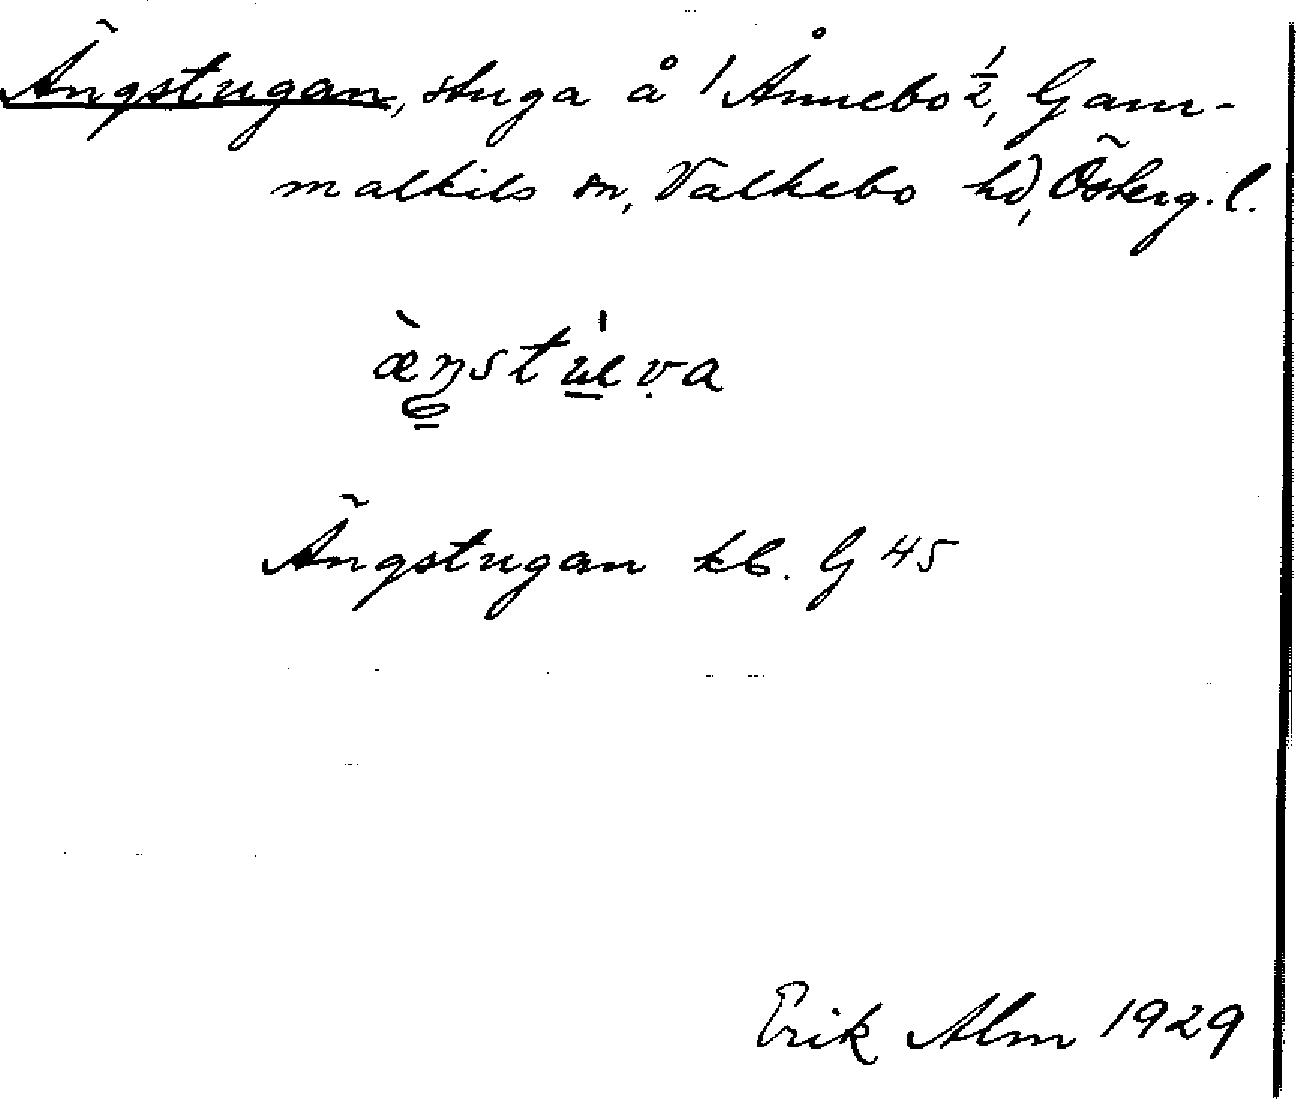 Ängstugan, stuga å 1 Ånnebo ½, Gam-
malkils sn, Valkebo hd, Österg. l.
Ängstugan kb. G 45
Erik Alm 1929